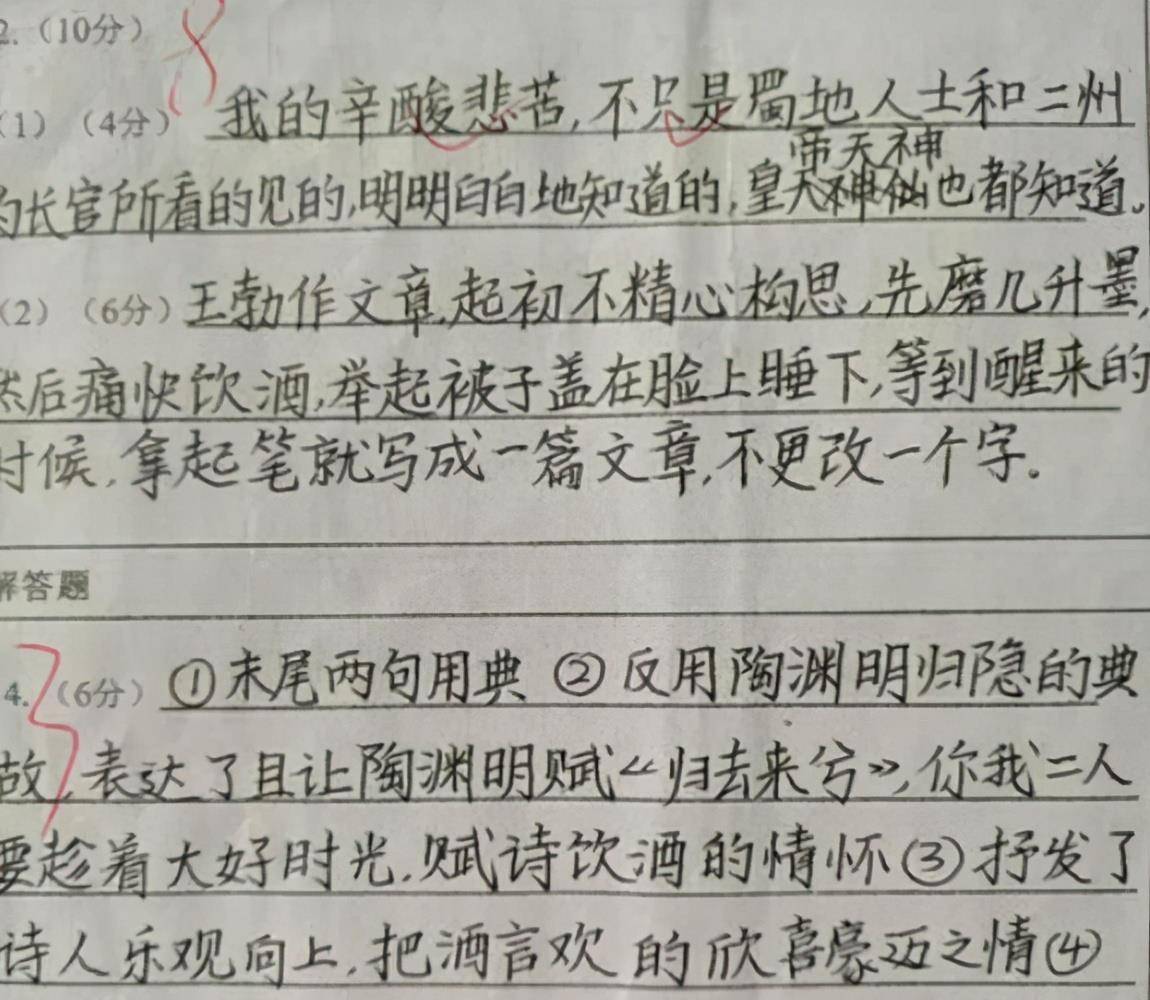 2.（10分） 8
（1）（4分） 我的辛酸悲苦,不只是蜀地人士和二州
帝天神
的长官所看的见的,明明白白地知道的,皇天神仙也都知道。
（2）（6分）王勃作文章,起初不精心构思,先磨几升墨,
然后痛快饮酒,举起被子盖在脸上睡下,等到醒来的
时候,拿起笔就写成一篇文章,不更改一个字.
解答题
4.（6分） 3 ①末尾两句用典 ②反用陶渊明归隐的典
故,表达了且让陶渊明赋《归去来兮》,你我二人
要趁着大好时光,赋诗饮酒的情怀③抒发了
诗人乐观向上,把酒言欢的欣喜豪迈之情④